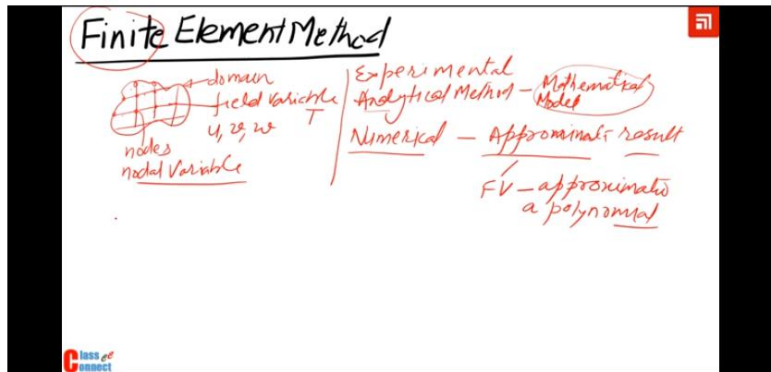 Finite Element Method
domain
field variable
u, v, w T
nodes
nodal variable
Experimental
Analytical Method - Mathematical
Model
Numerical - Approximate result
FV - approximatio
a polynomial
Class ee
Connect